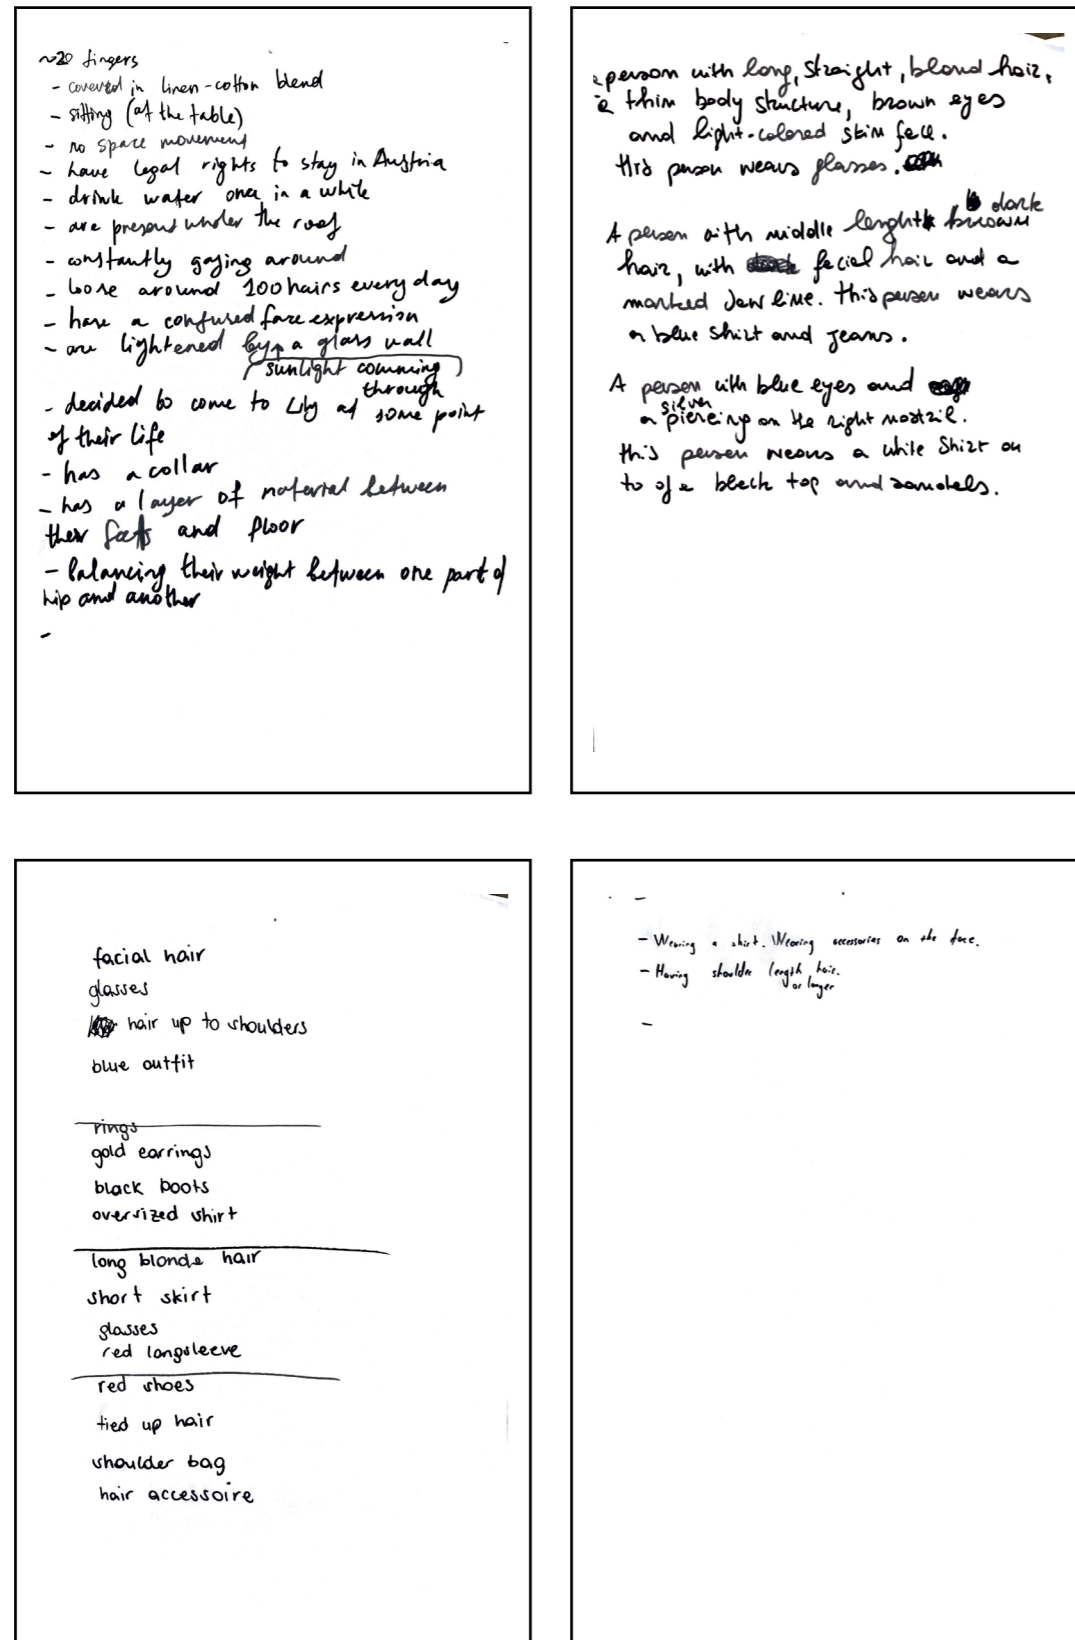 ~20 fingers
- covered in linen-cotton blend
- sitting (at the table)
- no space movement
- have legal rights to stay in Austria
- drink water once in a while
- are present under the roof
- constantly gazing around
- loose around 100 hairs every day
- have a confused face expression
- are lightened by a glass wall
(sunlight comming through)
- decided to come to at some point
of their life
- has a collar
- has a layer of material between
their and floor
- balancing their weight between one part of
hip and another
-
person with long, straight, blond hair,
a thin body structure, brown eyes
and light-colored skin face.
this person wears glasses.
A person with middle lenght dark brown
hair, with facial hair and a
marked Jaw line. this person wears
a blue shirt and jeans.
A person with blue eyes and
a silver piercing on the right nostril.
this person wears a white shirt on
to of a black top and sandals.
facial hair
glasses
hair up to shoulders
blue outfit
rings
gold earrings
black boots
oversized shirt
long blonde hair
short skirt
glasses
red longsleeve
red shoes
tied up hair
shoulder bag
hair accessoire
-
- Wearing a shirt. Wearing accessories on the face.
- Having shoulder length hair.
or longer
-